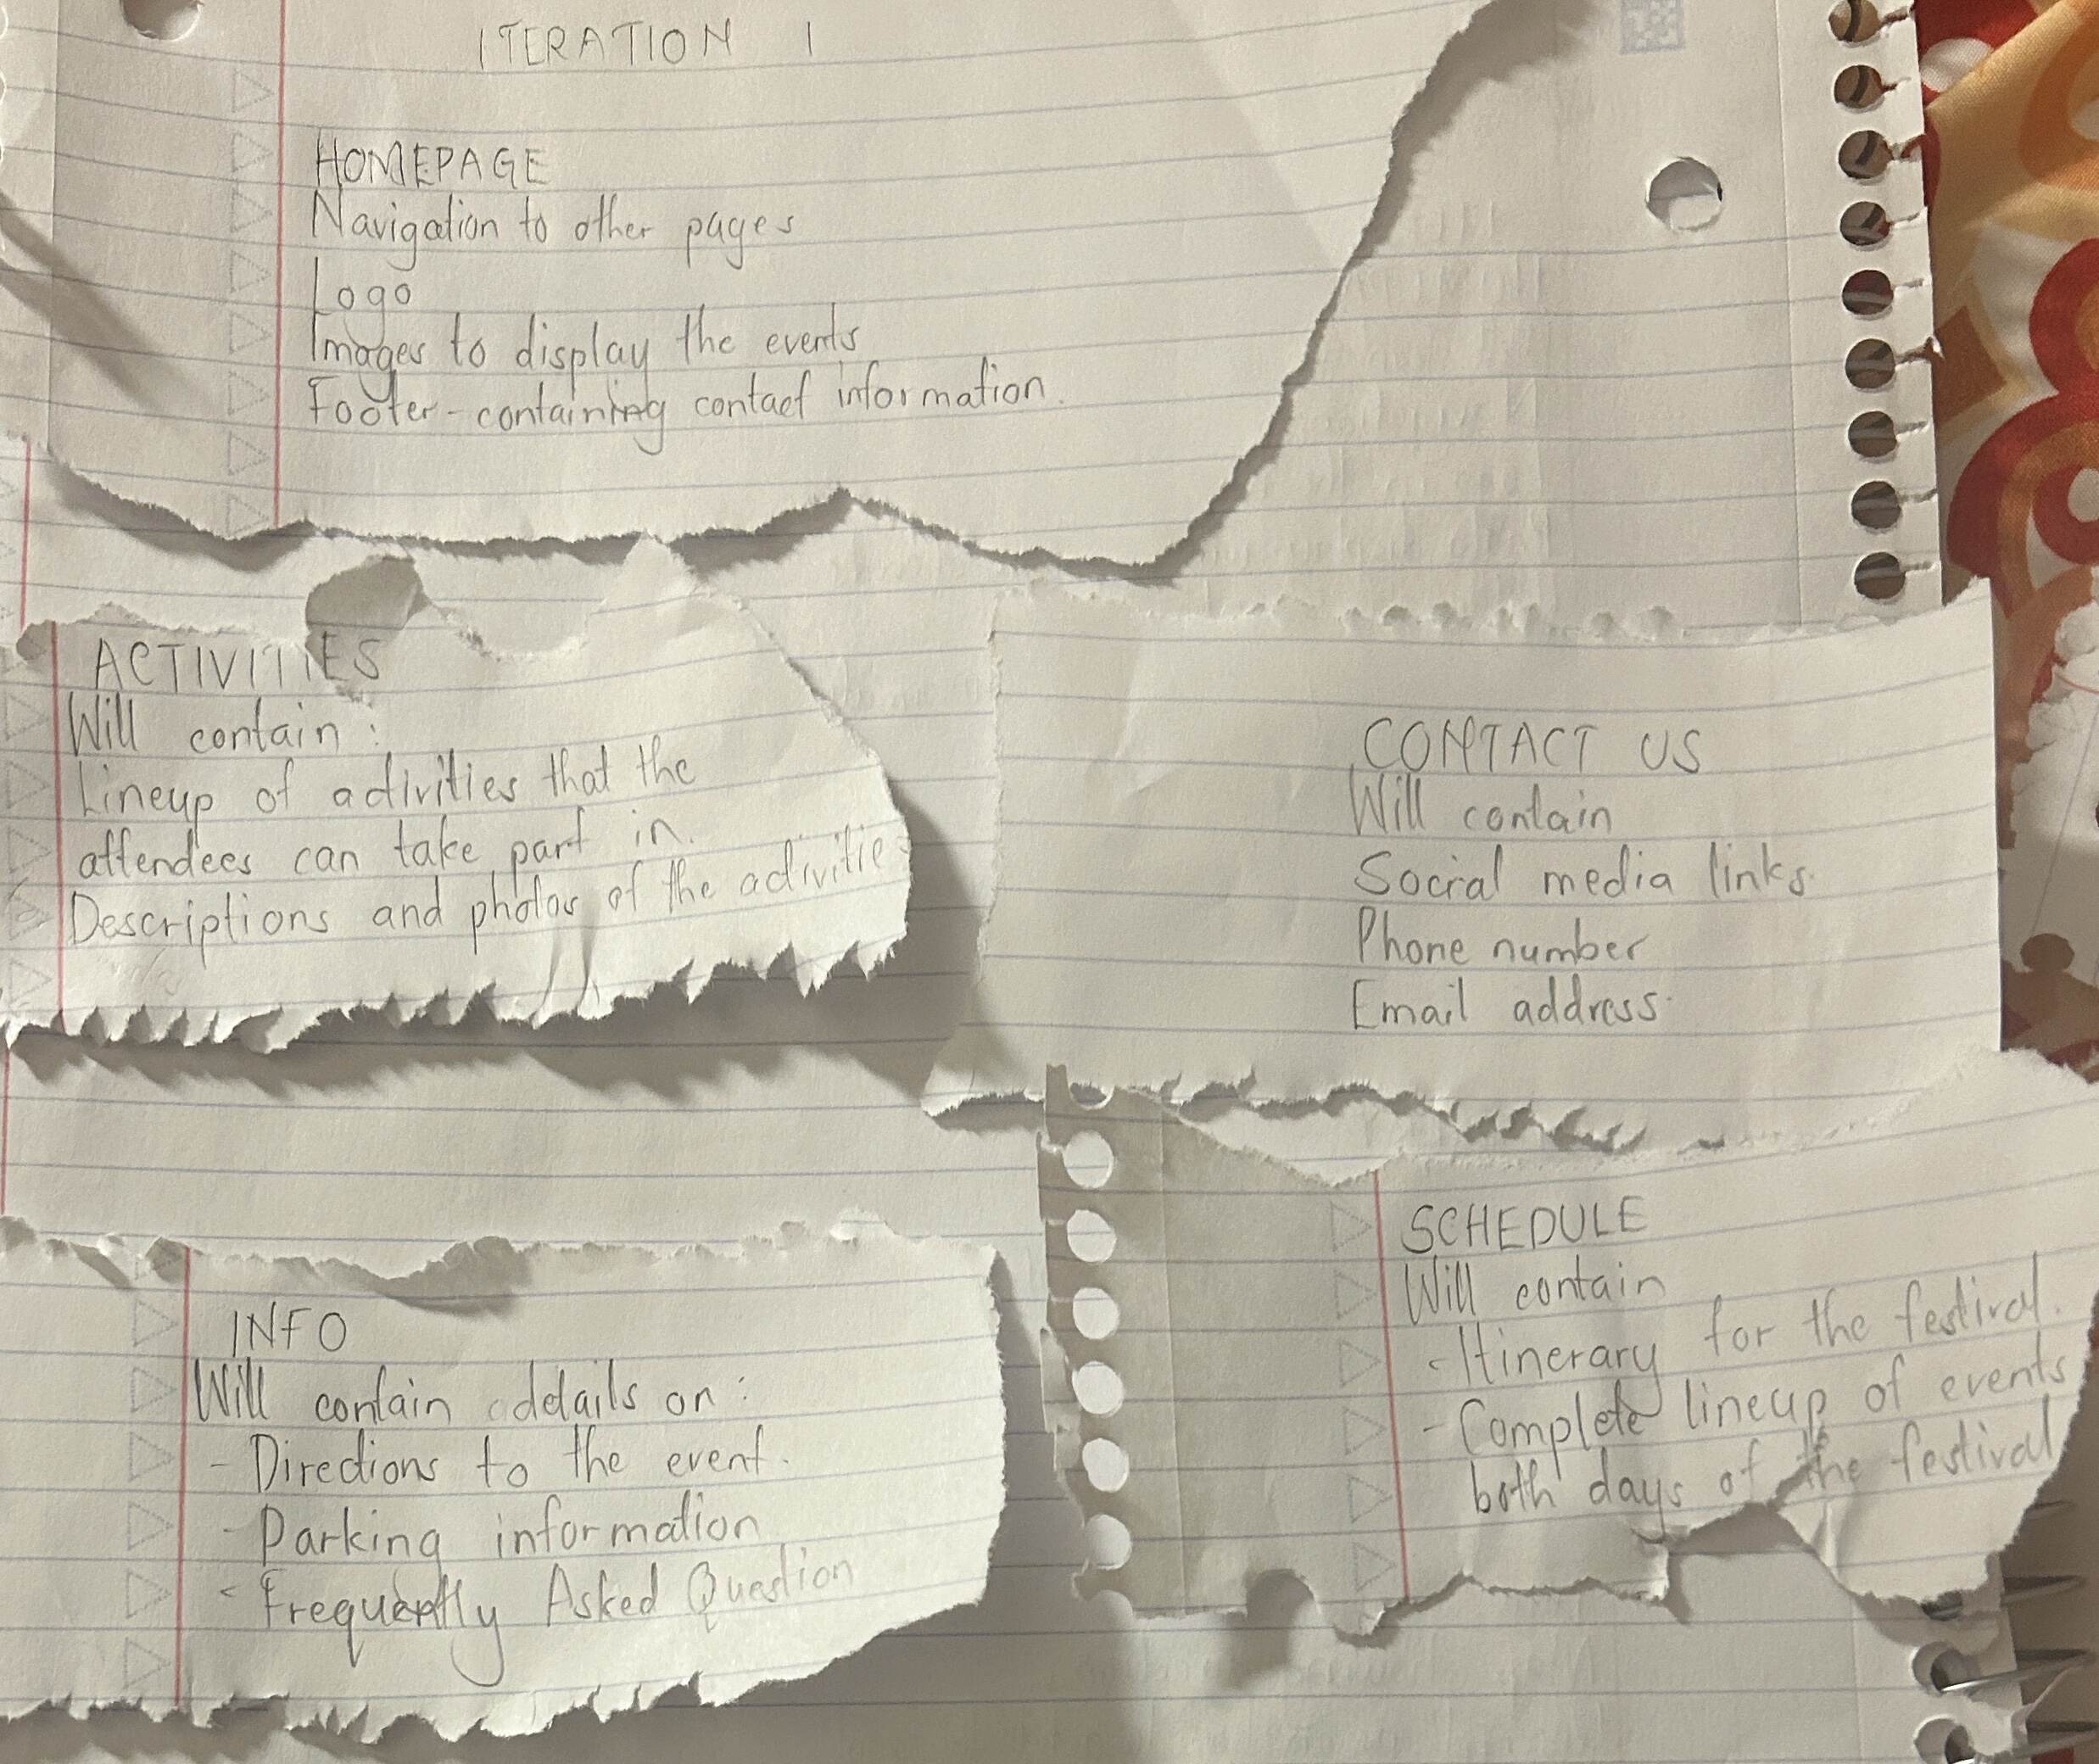 ITERATION 1
HOMEPAGE
Navigation to other pages
Logo
Images to display the events
Footer - containing contact information.
ACTIVITIES
Will contain :
Lineup of activities that the
attendees can take part in.
Descriptions and photos of the activities
CONTACT US
Will contain
Social media links.
Phone number
Email address.
INFO
Will contain details on :
- Directions to the event.
- Parking information
- Frequently Asked Question
SCHEDULE
Will contain
- Itinerary for the festival.
- Complete lineup of events
both days of the festival